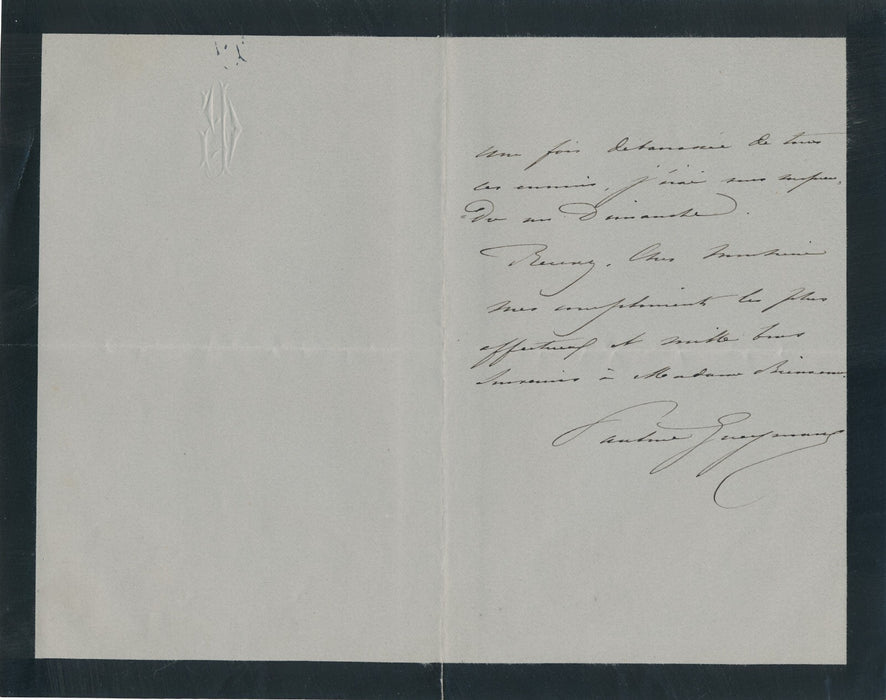 une fois debarrassée de tous
ces ennuis, j'irai vous
un Dimanche.
Recevez, Cher Monsieur
mes compliments les plus
affectueux et mille bons
souvenirs à Madame
Pauline Gueymard